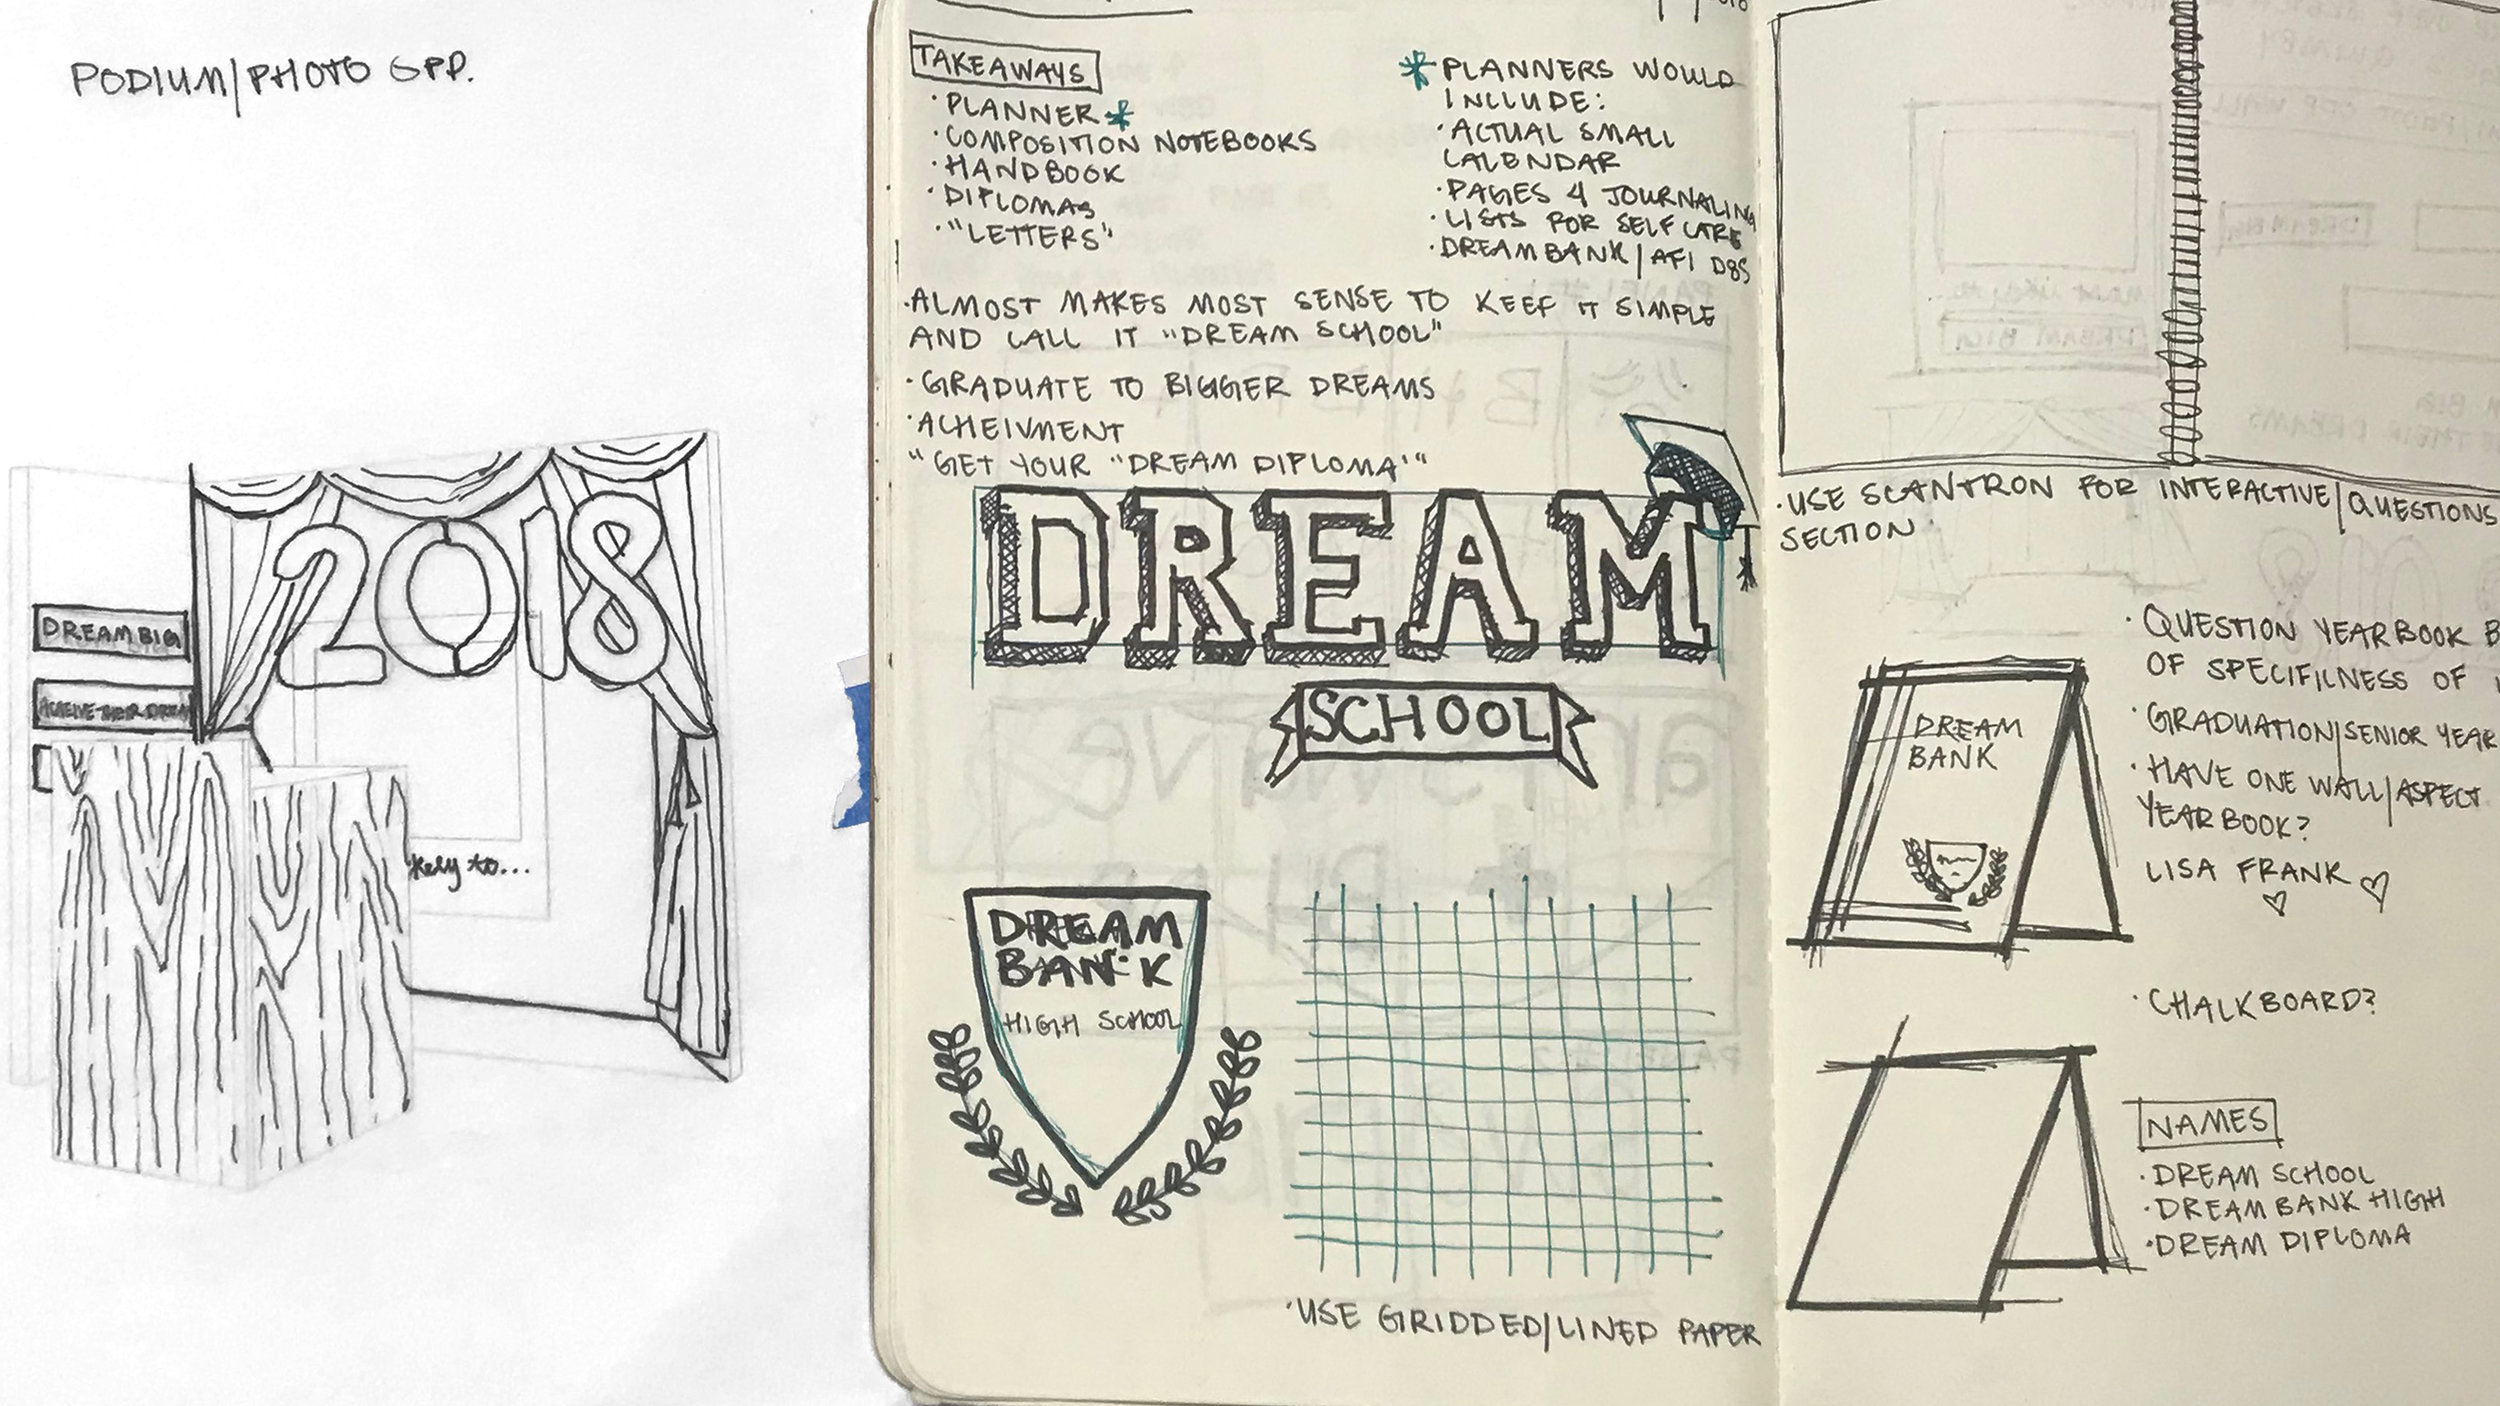 PODIUM/PHOTO OPP.
2018
DREAM BIG
ACHEIVE THEIR DREAM
kely to...
TAKEAWAYS
· PLANNER *
· COMPOSITION NOTEBOOKS
· HANDBOOK
· DIPLOMAS
· "LETTERS"
* PLANNERS WOULD
INCLUDE:
· ACTUAL SMALL
CALENDAR
· PAGES 4 JOURNALING
· LISTS FOR SELF CARE
· DREAMBANK/AFI
· ALMOST MAKES MOST SENSE TO KEEP IT SIMPLE
AND CALL IT "DREAM SCHOOL"
· GRADUATE TO BIGGER DREAMS
· ACHEIVMENT
"GET YOUR "DREAM DIPLOMA'"
DREAM
SCHOOL
DREAM
BANK
HIGH SCHOOL
· USE GRIDDED/LINED PAPER
· USE SCANTRON FOR INTERACTIVE/QUESTIONS
SECTION
· QUESTION YEARBOOK B
OF SPECIFICNESS OF
· GRADUATION/SENIOR YEAR
· HAVE ONE WALL/ASPECT
YEARBOOK?
LISA FRANK ♡
♡
DREAM
BANK
· CHALKBOARD?
NAMES
· DREAM SCHOOL
· DREAM BANK HIGH
· DREAM DIPLOMA